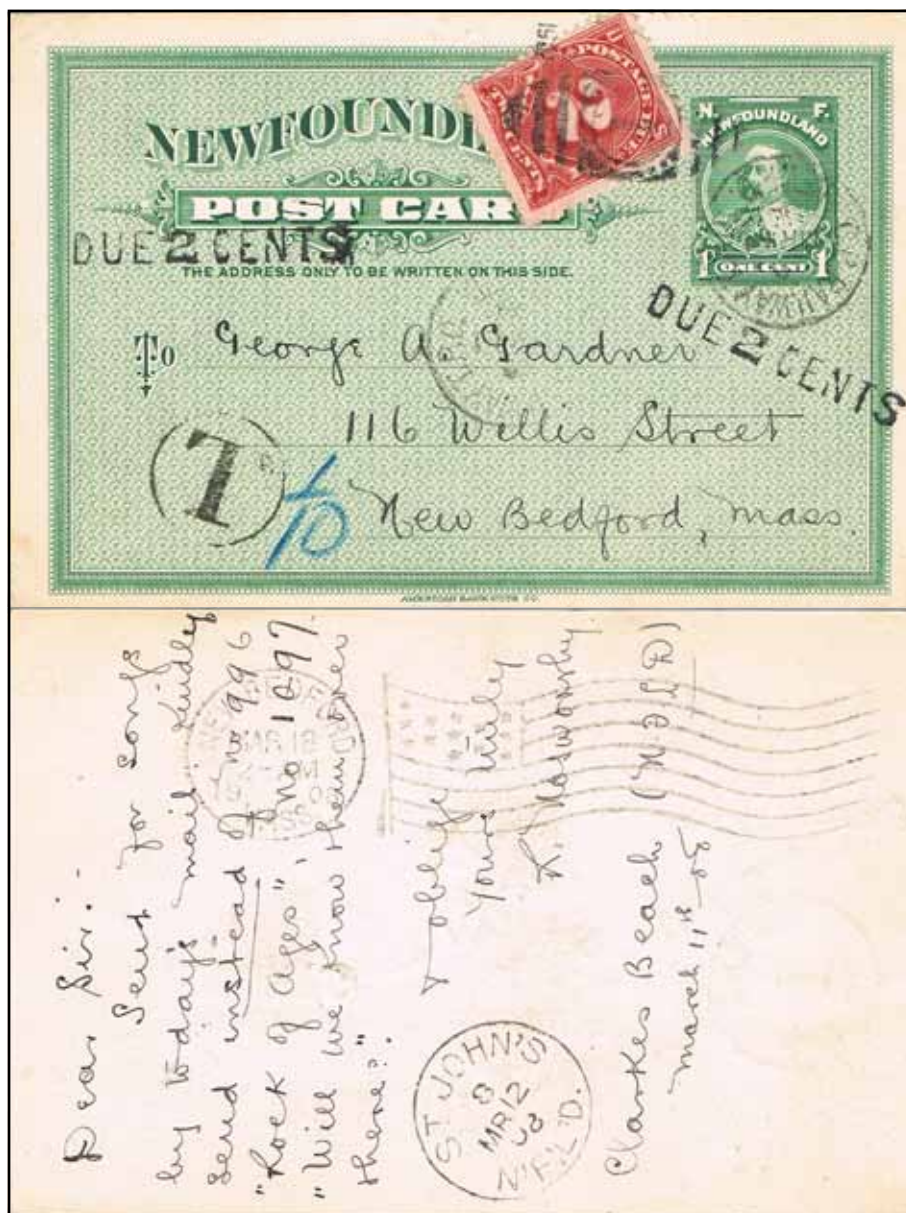 NEWFOUNDL
POST CARD
THE ADDRESS ONLY TO BE WRITTEN ON THIS SIDE.
POSTAGE DUE
2
N. F.
NEWFOUNDLAND
1 ONE CENT 1
DUE 2 CENTS
DUE 2 CENTS
RAILWAY
To George A. Gardner
116 Willis Street
New Bedford, Mass.
T
1/10
AMERICAN BANK NOTE CO.
Dear Sir.
Sent for songs
by today's mail. Kindly
send instead of no 996
"Rock of Ages", no 1097.
"Will we know them over
there?".
& oblige
Yours truly
R. Mosworthy.
Clarkes Beach
(N.F.L.D)
March 11th 08
MAR 12
ST JOHN'S
8
MR 12
08
N'F'L'D.